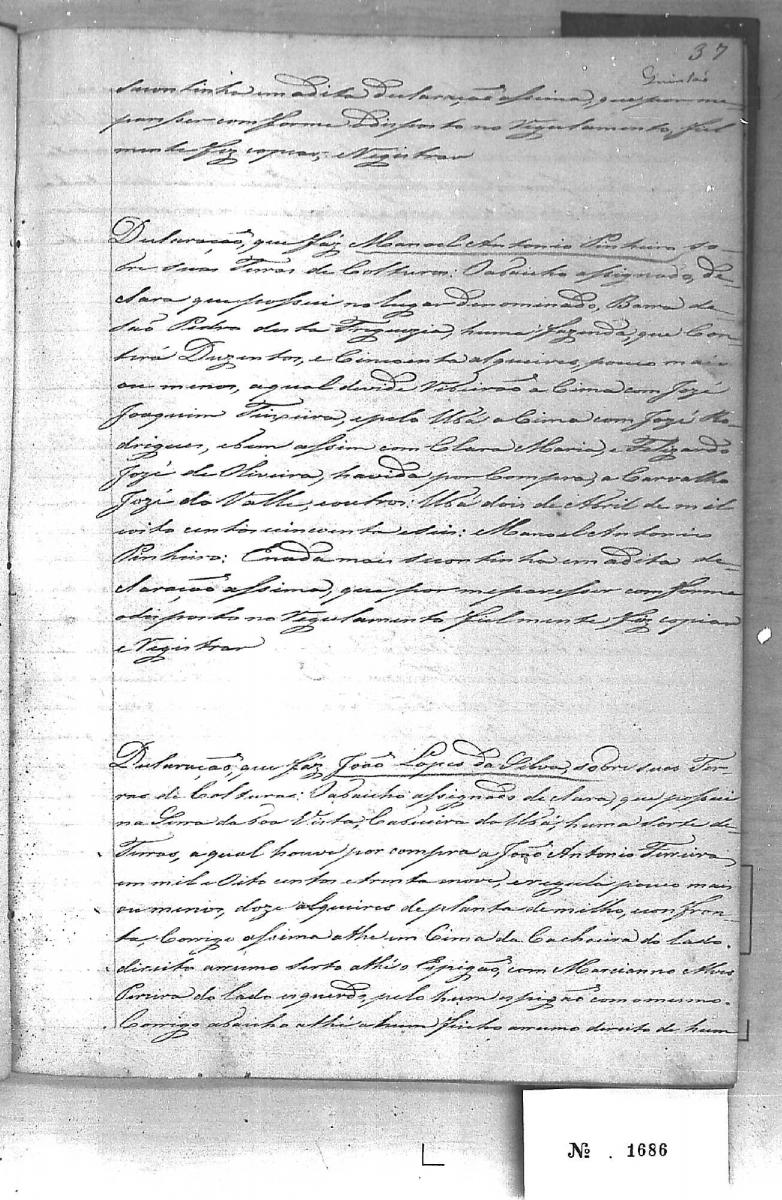 37
Quintão
secontinha em adita declaração assima, que por me
paresser comforme odisposto no Regulamento, fiel
mente fiz copiar, e Registrar
Declaração, que fáz Manoel Antonio Pinheiro, so-
bre suas Terras de Colturas: Oabaicho assignado, de-
clara que possui no lugar denominado, Barra de
São Pedro desta Freguezia, huma fazenda, que Con-
tirá Duzentos, e Cincoenta alqueires, pouco mais
ou menos, aqual divide Ribeirão a Cima com Jozé
Joaquim Teixeira, epelo Ubá a Cima com Jozé Ro-
drigues, ebem assim com Clara Maria, e Felizardo
Jozé de Oliveira, havida por Compra, a Carvalho
Jozé do Valle, eoutros: Ubá dois de Abril de mil
oito centos cincoenta eseis: Manoel Antonio
Pinheiro: Enada mais secontinha em adita de-
claração assima, que por meparesser comforme
odisposto no Regulamento fielmente fiz copiar
e Registrar
Declaração, que fáz João Lopes da Silva, sobre suas Ter-
ras de Colturas: Oabaicho assignado declara, que possui
na Serra da boa Vista, Cabiceira do Ubá, huma Sorte de
Terras, aqual houve por compra a João Antonio Ferreira,
em mil e Oito centos etrinta enove, eregulá pouco mais
ou menos, doze alqueires de planta de milho, com fron-
ta, Corrigo assima athe em Cima da Cachoeira do lado
direito arrumo serto athé o Espigão, com Marcianno Alves
Pereira do lado esquerdo, pelo hum espigão com omesmo
Corrigo abaicho athé ahum arrumo direito de hum
Nº . 1686